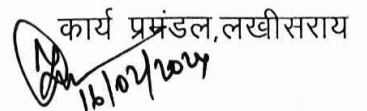 कार्य प्रमंडल,लखीसराय
16/02/2024